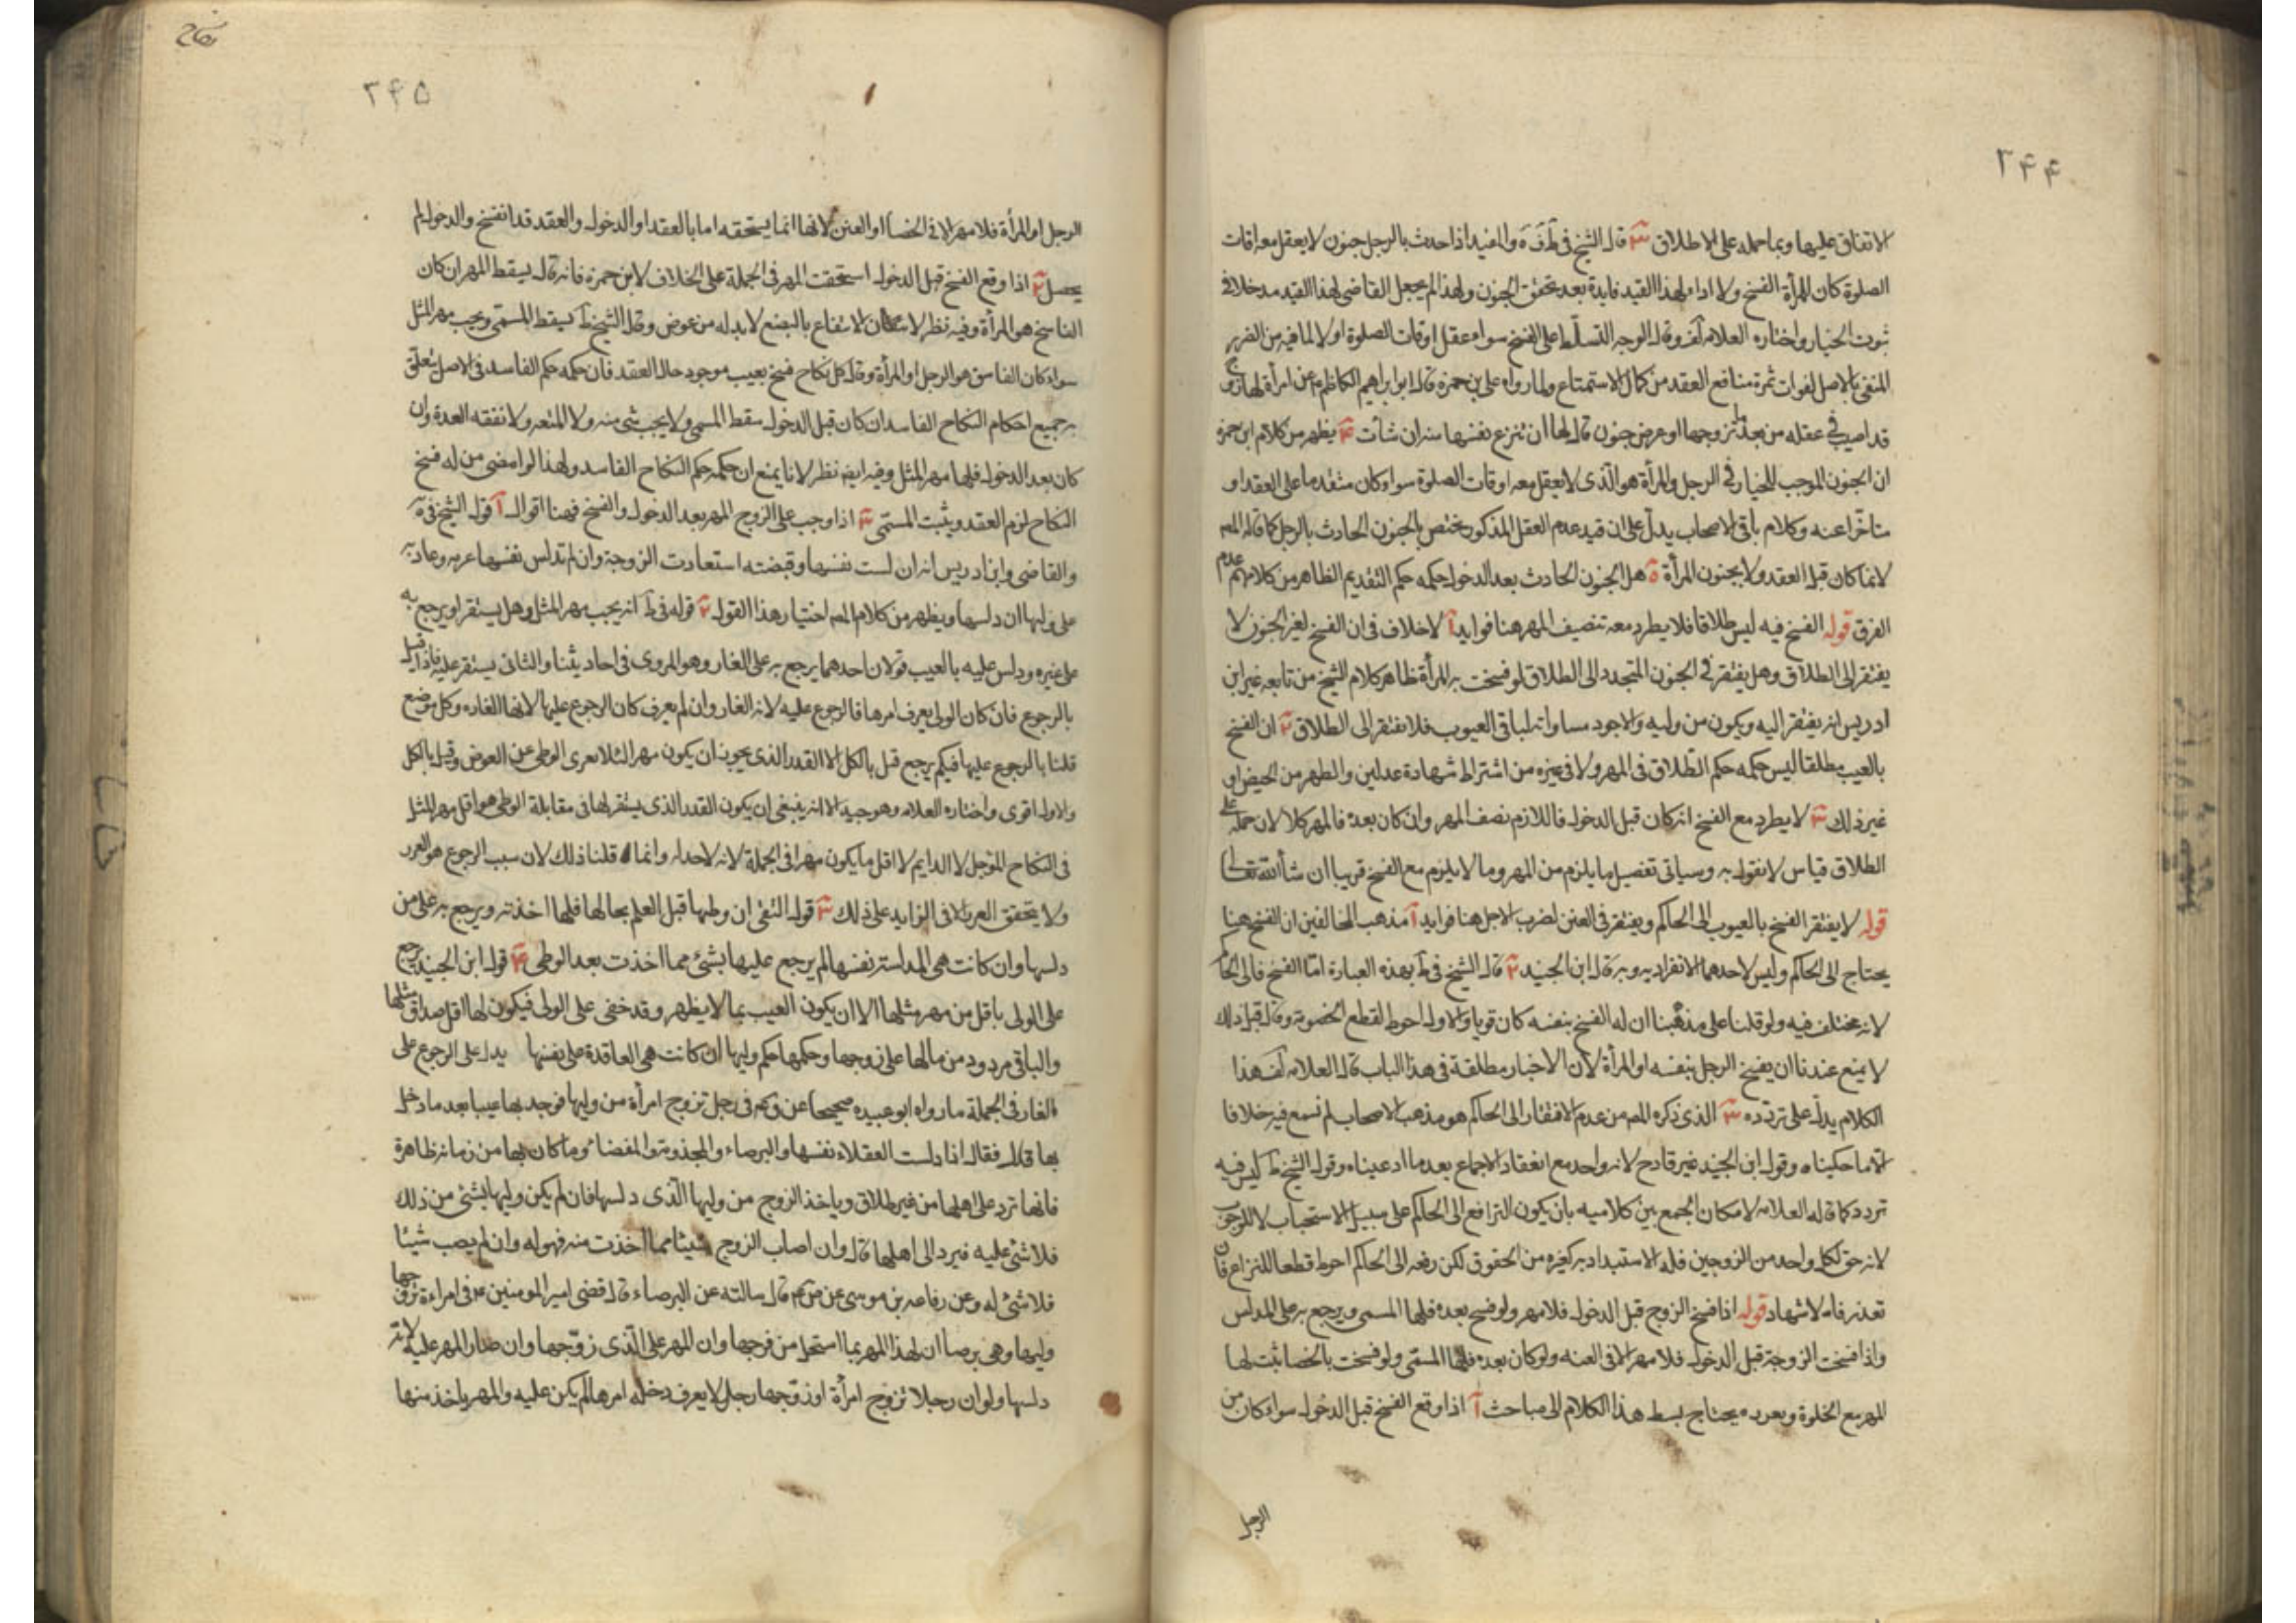 ۲۴۴
الاتفاق عليها وبما حمله على الاطلاق ۳ قال الشيخ في ط وف ويه والمفيد اذا حدث بالرجل جنون لا يعقل معه اوقات
الصلوة كان للمرأة الفسخ ولا ادا ولهذا القيد فايدة بعد تحقق الجنون ولهذا لم يجعل القاضى لهذا القيد مدخلا فى
ثبوت الخيار واختاره العلامه فى لف وقال الوجه التسلط على الفسخ سواء عقل اوقات الصلوة او لا لما فيه من الضرر
المنفى بالاصل لفوات ثمرة منافع العقد من كمال الاستمتاع ولما رواه على بن حمزه قال ابو ابراهيم الكاظم ع عن امرأة لها زوج
قد اصيب فى عقله من بعد ما تزوجها او عرض جنون قال لها ان تنزع نفسها منه ان شأت ۴ يظهر من كلام ابن حمزه
ان الجنون الموجب للخيار فى الرجل والمرأة هو الذى لا يعقل معه اوقات الصلوة سواء كان متقدما على العقد او
متاخرا عنه وكلام باقى الاصحاب يدل على ان قيد عدم العقل المذكور مختص بالجنون الحادث بالرجل كما قاله المص
لا بما كان قبل العقد ولا بجنون المرأة ۵ هل الجنون الحادث بعد الدخول حكمه حكم التقديم الظاهر من كلامهم عدم
الفرق قوله الفسخ فيه ليس طلاقا فلا يطرد معه تنصيف المهر هنا فوايد آ لا خلاف فى ان الفسخ لغير الجنون لا
يفتقر الى الطلاق وهل يفتقر فى الجنون المتجدد الى الطلاق لو فسخت به المرأة ظاهر كلام الشيخ من تابعه غير ابن
ادريس انه يفتقر اليه ويكون من وليه والاجود مساواته لباقى العيوب فلا تفتقر الى الطلاق ۲ ان الفسخ
بالعيب مطلقا ليس حكمه حكم الطلاق فى المهر ولا فى غيره من اشتراط شهادة عدلين والطهر من الحيض او
غير ذلك ۳ لا يطرد مع الفسخ انه كان قبل الدخول فاللازم نصف المهر وان كان بعده فالمهر كلا لان حمله على
الطلاق قياس لا نقول به وسياتى تفصيل ما يلزم من المهر وما لا يلزم مع الفسخ قريبا ان شأ الله تعالى
قوله لا يفتقر الفسخ بالعيوب الى الحاكم ويفتقر فى العنن لضرب الاجل هنا فوايد آ مذهب المخالفين ان الفسخ هنا
يحتاج الى الحاكم وليس لاحدهما الانفراد به وبه قال ابن الجنيد ۲ قال الشيخ فى ط بهذه العبارة امّا الفسخ فالى الحاكم
لانه مختلف فيه ولو قلنا على مذهبنا ان له الفسخ بنفسه كان قويا والاول احوط لقطع الخصومة وقال قبل ذلك
لا يمنع عندنا ان يفسخ الرجل بنفسه او المرأة لان الاخبار مطلقة فى هذا الباب قال العلامه فى لف هذا
الكلام يدل على تردده ۳ الذى ذكره المص من عدم الافتقار الى الحاكم هو مذهب الاصحاب لم نسمع فيه خلافا
الا ما حكيناه وقول ابن الجنيد غير قادح لانه واحد مع انعقاد الاجماع بعد ما ادعيناه وقول الشيخ فى ط ليس فيه
تردد كما قاله العلامه لامكان الجمع بين كلاميه بان يكون الترافع الى الحاكم على سبيل الاستحباب لا الوجوب
لانه حق لكل واحد من الزوجين فله الاستبداد به كغيره من الحقوق لكن رفعه الى الحاكم احوط قطعا للنزاع فان
تعذر فالاشهاد قوله اذا فسخ الزوج قبل الدخول فلا مهر ولو فسخ بعده فلها المسمى ويرجع به على المدلس
واذا فسخت الزوجة قبل الدخول فلا مهر الا فى العنه ولو كان بعده فلها المسمّى ولو فسخت بالخصا ثبت لها
المهر مع الخلوة ويعزر ه يحتاج بسط هذا الكلام الى مباحث آ اذا وقع الفسخ قبل الدخول سواء كان من
الرجل
نكاح
۲۴۵
الرجل او المرأة فلا مهر الا فى الخصا او العنن لانها انما يستحقه اما بالعقد او الدخول والعقد قد انفسخ والدخول لم
يحصل ۲ اذا وقع الفسخ قبل الدخول استحقت المهر فى الجملة على الخلاف لابن حمزه فانه قال يسقط المهر ان كان
الفاسخ هو المرأة وفيه نظر لاسكان الانتفاع بالبضع لا بد له من عوض وقال الشيخ فى ط يسقط المسمّى ويجب مهر المثل
سواء كان الفاسق هو الرجل او المرأة وقال كل نكاح فسخ بعيب موجود حال العقد فان حكمه حكم الفاسد فى الاصل يتعلق
به جميع احكام النكاح الفاسد ان كان قبل الدخول سقط المسمى ولا يجب شى منه ولا المتعه ولا نفقه العدة وان
كان بعد الدخول فلها مهر المثل وفيه ايضا نظر لانا يمنع ان حكمه حكم النكاح الفاسد ولهذا لو امضى من له فسخ
النكاح لزم العقد ويثبت المسمّى ۳ اذا وجب على الزوج المهر بعد الدخول والفسخ فهنا اقوال آ قول الشيخ فى يه
والقاضى وابن ادريس انه ان لست نفسها وقبضته استعادت الزوجة وان لم تدلس نفسها غرمه وعاد به
على وليها ان دلسها ويظهر من كلام المص اختيار هذا القول ۲ قوله فى ط انه يجب مهر المثل وهل يستقر او يرجع به
على غيره ودلس عليه بالعيب قولان احدهما يرجع به على الغار وهو المروى فى احاديثنا والثانى يستقر عليه فاذا قيل
بالرجوع فان كان الولى يعرف امرها فالرجوع عليه لانه الغار وان لم يعرف كان الرجوع عليها لانها الغاره وكل موضع
قلنا بالرجوع عليها فبكم يرجع قبل بالكل الا القدر الذى يجوز ان يكون مهر الئلا يعرى الوطى عن العوض وقيل بالكل
والاول اقوى واختاره العلامه وهو جيد الا انه ينبغى ان يكون القدر الذى يستقر لها فى مقابلة الوطى هو اقل مهر المثل
فى النكاح المؤجل لا الدايم لا اقل ما يكون مهرا فى الجملة لانه لا حد له وانما قلنا ذلك لان سبب الرجوع هو الغرر
ولا يتحقق الغرر الا فى الزايد على ذلك ۳ قول التقى ان وطيها قبل العلم بحالها فلها اخذته ويرجع به على من
دلسها وان كانت هى المدلستر نفسها لم يرجع عليها بشئ مما اخذت بعد الوطى ۴ قول ابن الجنيد يرجع
على الولى باقل من مهر مثلها الا ان يكون العيب بما لا يظهر وقد خفى على الولى فيكون لها اقل صداق مثلها
والباقى مردود من مالها على زوجها وحكمها حكم وليها ان كانت هى العاقدة على نفسها يدل على الرجوع على
الغار فى الجملة ما رواه ابو عبيده صحيحا عن فى رجل تزوج امرأة من وليها فوجد بها عيبا بعد ما دخل
بها قال فقال اذا دلست العفلاء نفسها والبرصاء والمجذومة والمفضاة وما كان بها من زمانة ظاهرة
فانها ترد على اهلها من غير طلاق وياخذ الزوج من وليها الّذى دلسها فان لم يكن وليها بشئ من ذلك
فلا شئ عليه فيرد الى اهلها قال وان اصاب الزوج شيئا مما اخذت منه فهو له وان لم يصب شيئا
فلا شئ له وعن رفاعه بن موسى عن قال سالته عن البرصاء قال قضى امير المومنين ع فى امراءة زوجها
وليها وهى برصا ان لهذا المهر بما استحل من فرجها وان المهر على الّذى زوّجها وان صار المهر عليه لانّه
دلسها ولو ان رجلا تزوج امرأة او زوّجها رجل لا يعرف دخله امرها لم يكن عليه والمهر ياخذ منها